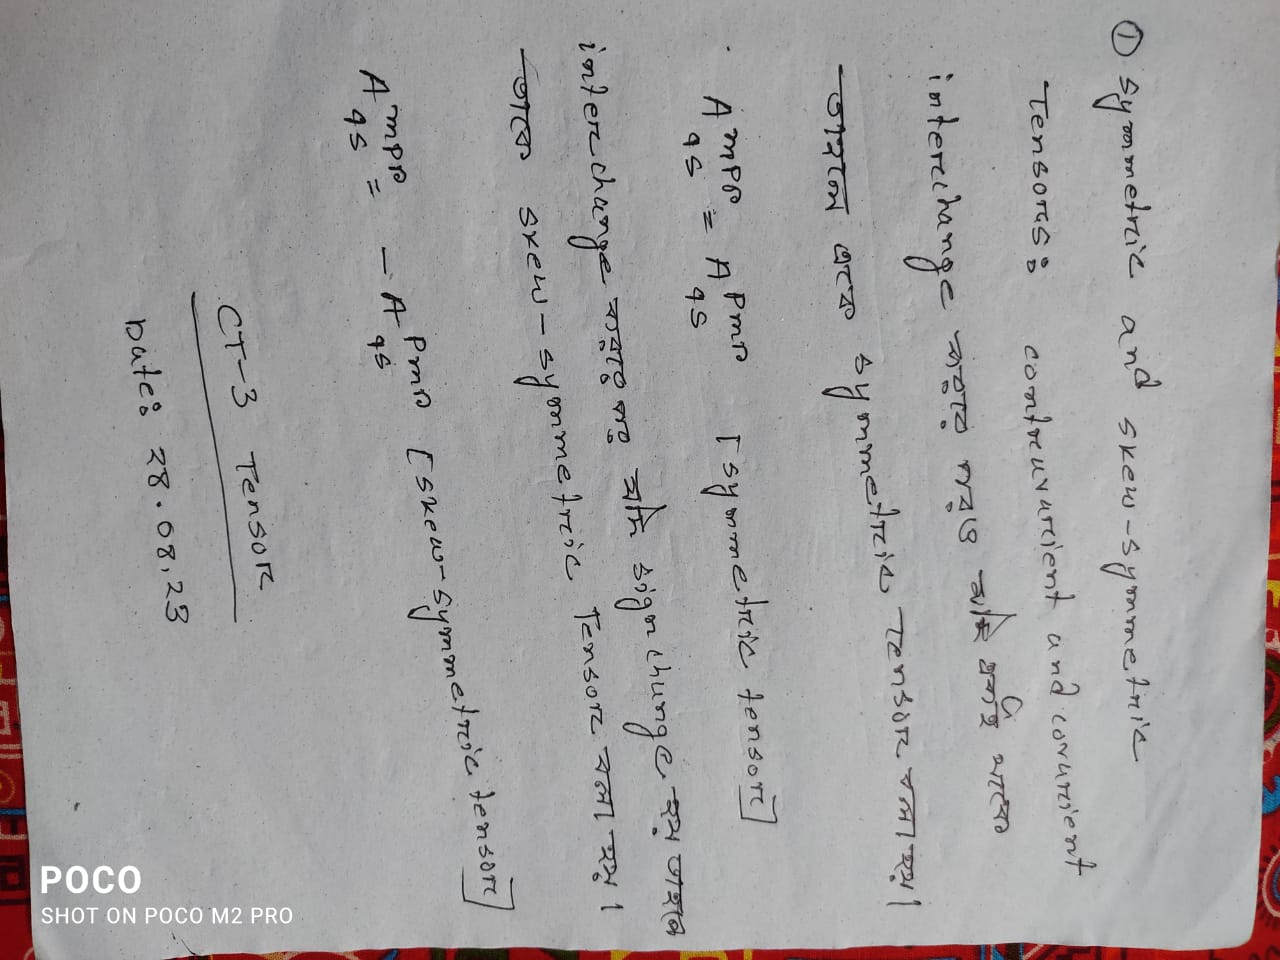 ① Symmetric and skew-symmetric
Tensors: contravarient and covarient
interchange করার পরও যদি একই থাকে
তাহলে একে symmetric Tensor বলা হয়।
A^{mpn}_{qs} = A^{pmn}_{qs} [symmetric tensor]
interchange করার পর যদি sign change হয় তাহলে
তাকে skew-symmetric Tensor বলা হয়।
A^{mpn}_{qs} = - A^{pmn}_{qs} [skew-symmetric tensor]
CT-3 Tensor
Date: 28.08.23
POCO
SHOT ON POCO M2 PRO